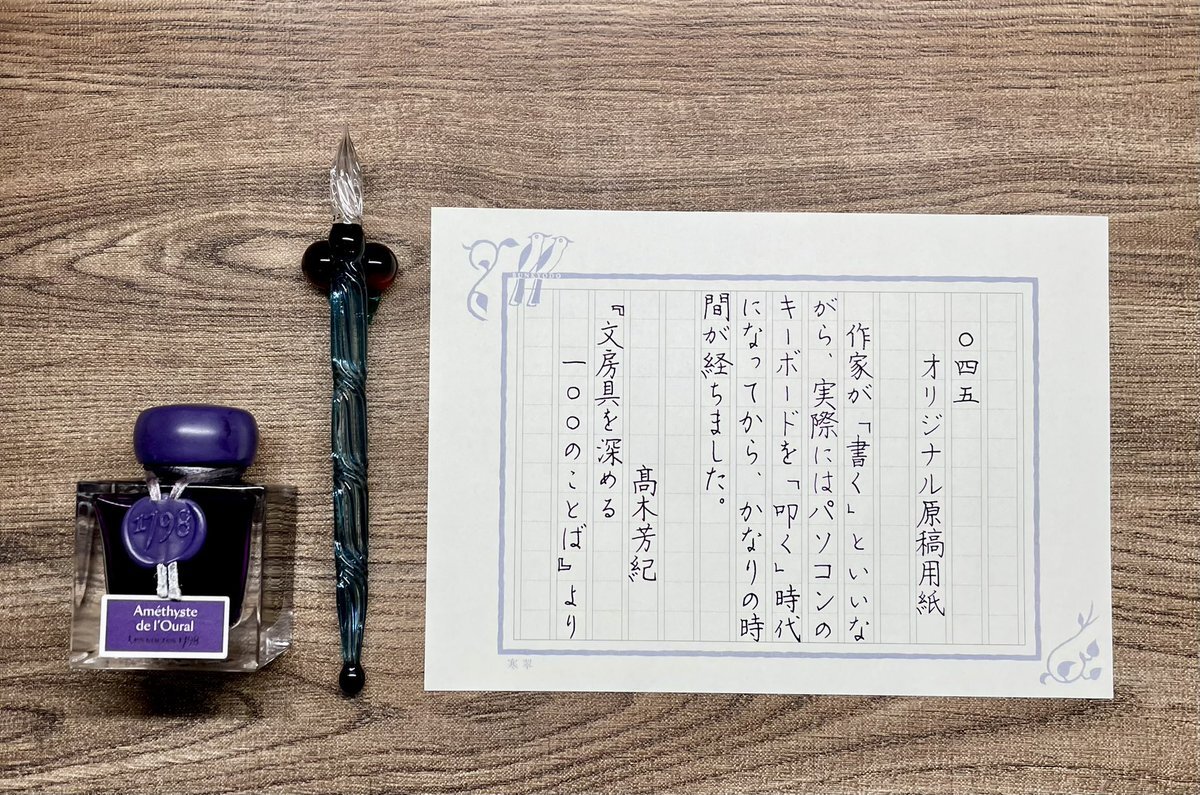 〇四五
オリジナル原稿用紙
作家が「書く」といいな
がら、実際にはパソコンの
キーボードを「叩く」時代
になってから、かなりの時
間が経ちました。
髙木芳紀
『文房具を深める
一〇〇のことば』より
BUNKYODO
寒翠
1798
Améthyste
de l'Oural